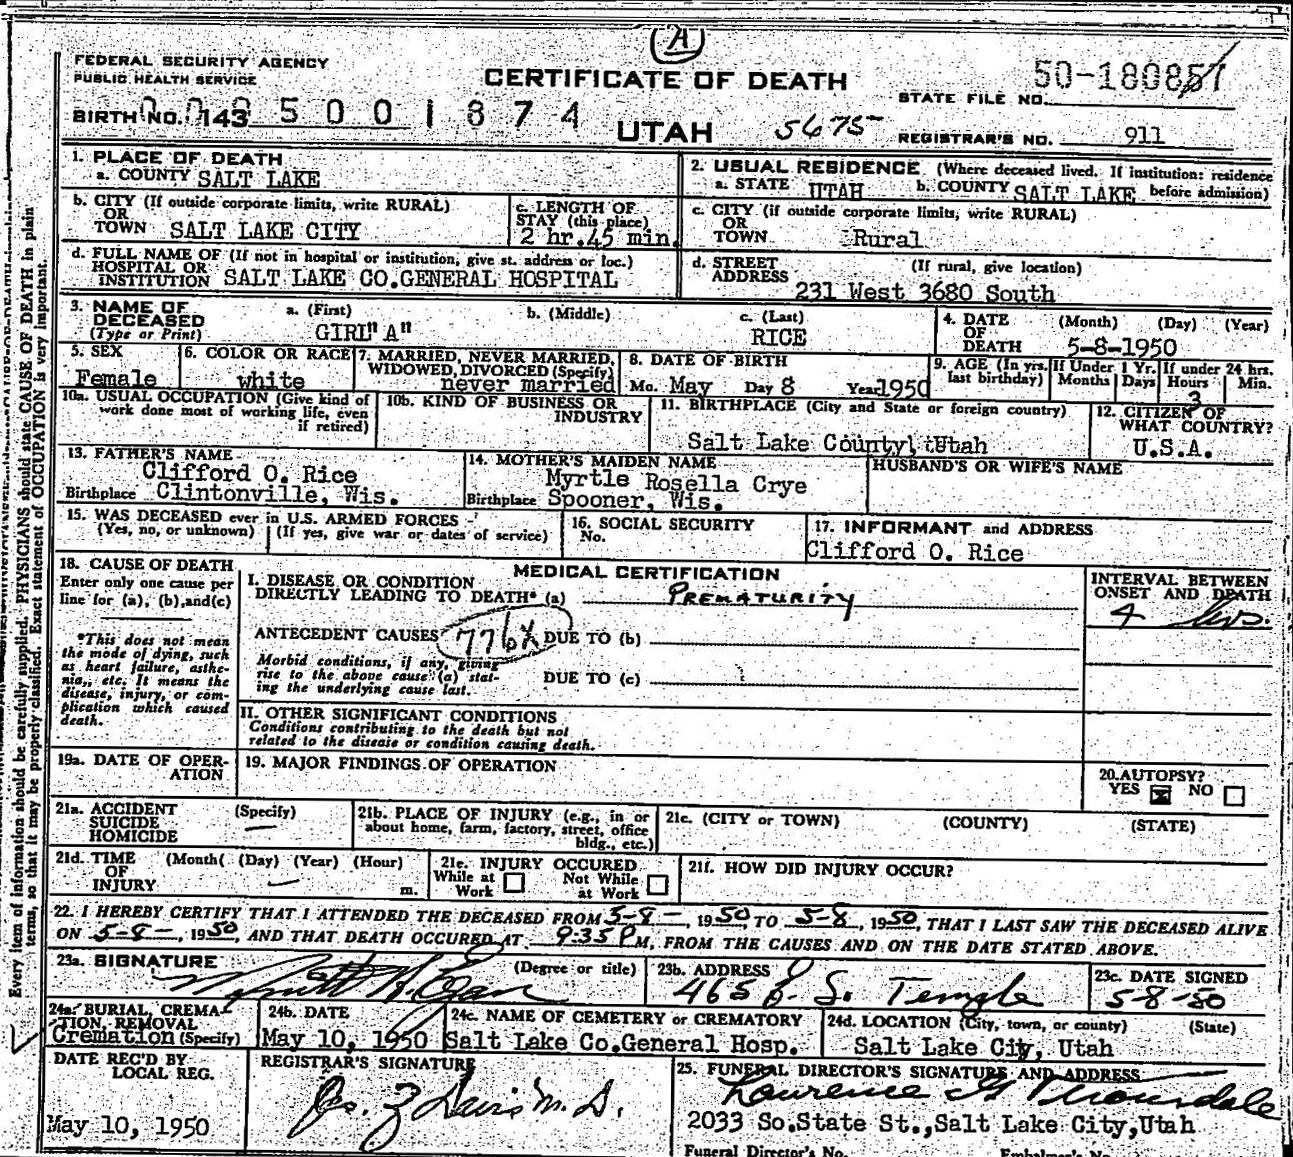 A
FEDERAL SECURITY AGENCY
PUBLIC HEALTH SERVICE
CERTIFICATE OF DEATH
50-180857
STATE FILE NO.
BIRTH NO. 143 5 0 0 1 8 7 4
UTAH
5675
REGISTRAR'S NO. 911
1. PLACE OF DEATH
a. COUNTY SALT LAKE
2. USUAL RESIDENCE (Where deceased lived. If institution: residence
a. STATE UTAH b. COUNTY SALT LAKE before admission)
b. CITY (If outside corporate limits, write RURAL)
OR
TOWN SALT LAKE CITY
c. LENGTH OF
STAY (this place)
2 hr.45 min.
c. CITY (if outside corporate limits, write RURAL)
OR
TOWN Rural
d. FULL NAME OF (If not in hospital or institution, give st. address or loc.)
HOSPITAL OR
INSTITUTION SALT LAKE CO.GENERAL HOSPITAL
d. STREET (If rural, give location)
ADDRESS
231 West 3680 South
3. NAME OF
DECEASED
(Type or Print)
a. (First)
GIRL"A"
b. (Middle)
c. (Last)
RICE
4. DATE (Month) (Day) (Year)
OF
DEATH 5-8-1950
5. SEX
Female
6. COLOR OR RACE
white
7. MARRIED, NEVER MARRIED,
WIDOWED, DIVORCED (Specify)
never married
8. DATE OF BIRTH
Mo. May Day 8 Year 1950
9. AGE (In yrs.
last birthday)
If Under 1 Yr.
Months Days
If under 24 hrs.
Hours Min.
3
10a. USUAL OCCUPATION (Give kind of
work done most of working life, even
if retired)
10b. KIND OF BUSINESS OR
INDUSTRY
11. BIRTHPLACE (City and State or foreign country)
Salt Lake County, Utah
12. CITIZEN OF
WHAT COUNTRY?
U.S.A.
13. FATHER'S NAME
Clifford O. Rice
Birthplace Clintonville, Wis.
14. MOTHER'S MAIDEN NAME
Myrtle Rosella Crye
Birthplace Spooner, Wis.
HUSBAND'S OR WIFE'S NAME
15. WAS DECEASED ever in U.S. ARMED FORCES
(Yes, no, or unknown) (If yes, give war or dates of service)
16. SOCIAL SECURITY
No.
17. INFORMANT and ADDRESS
Clifford O. Rice
18. CAUSE OF DEATH
Enter only one cause per
line for (a), (b),and(c)
*This does not mean
the mode of dying, such
as heart failure, asthe-
nia, etc. It means the
disease, injury, or com-
plication which caused
death.
MEDICAL CERTIFICATION
I. DISEASE OR CONDITION
DIRECTLY LEADING TO DEATH* (a) PREMATURITY
ANTECEDENT CAUSES 776X DUE TO (b)
Morbid conditions, if any, giving
rise to the above cause (a) stat-
ing the underlying cause last.
DUE TO (c)
II. OTHER SIGNIFICANT CONDITIONS
Conditions contributing to the death but not
related to the disease or condition causing death.
INTERVAL BETWEEN
ONSET AND DEATH
4 hrs.
19a. DATE OF OPER-
ATION
19. MAJOR FINDINGS OF OPERATION
20. AUTOPSY?
YES NO
21a. ACCIDENT (Specify)
SUICIDE —
HOMICIDE
21b. PLACE OF INJURY (e.g., in or
about home, farm, factory, street, office
bldg., etc.)
21c. (CITY or TOWN) (COUNTY) (STATE)
21d. TIME (Month( (Day) (Year) (Hour)
OF
INJURY — m.
21e. INJURY OCCURED
While at Not While
Work at Work
21f. HOW DID INJURY OCCUR?
22. I HEREBY CERTIFY THAT I ATTENDED THE DECEASED FROM 5-8-, 1950, TO 5-8, 1950, THAT I LAST SAW THE DECEASED ALIVE
ON 5-8-, 1950, AND THAT DEATH OCCURED AT 9:35 P M, FROM THE CAUSES AND ON THE DATE STATED ABOVE.
23a. SIGNATURE (Degree or title)
23b. ADDRESS
465 E. S. Temple
23c. DATE SIGNED
5-8-50
24a. BURIAL, CREMA-
TION, REMOVAL
Cremation (Specify)
24b. DATE
May 10, 1950
24c. NAME OF CEMETERY or CREMATORY
Salt Lake Co.General Hosp.
24d. LOCATION (City, town, or county) (State)
Salt Lake City, Utah
DATE REC'D BY
LOCAL REG.
May 10, 1950
REGISTRAR'S SIGNATURE
Jas. Z Davis M.D.
25. FUNERAL DIRECTOR'S SIGNATURE AND ADDRESS
Laurence
2033 So.State St.,Salt Lake City,Utah
Funeral Director's No. Embalmer's No.
Every item of information should be carefully supplied. PHYSICIANS should state CAUSE OF DEATH in plain
terms, so that it may be properly classified. Exact statement of OCCUPATION is very important.